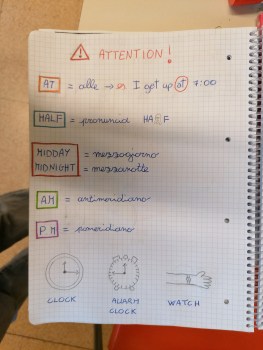 ATTENTION!
AT = alle → es I get up at 7:00
HALF = pronuncia HALF
MIDDAY = mezzogiorno
MIDNIGHT = mezzanotte
AM = antimeridiano
PM = pomeridiano
CLOCK ALARM CLOCK WATCH